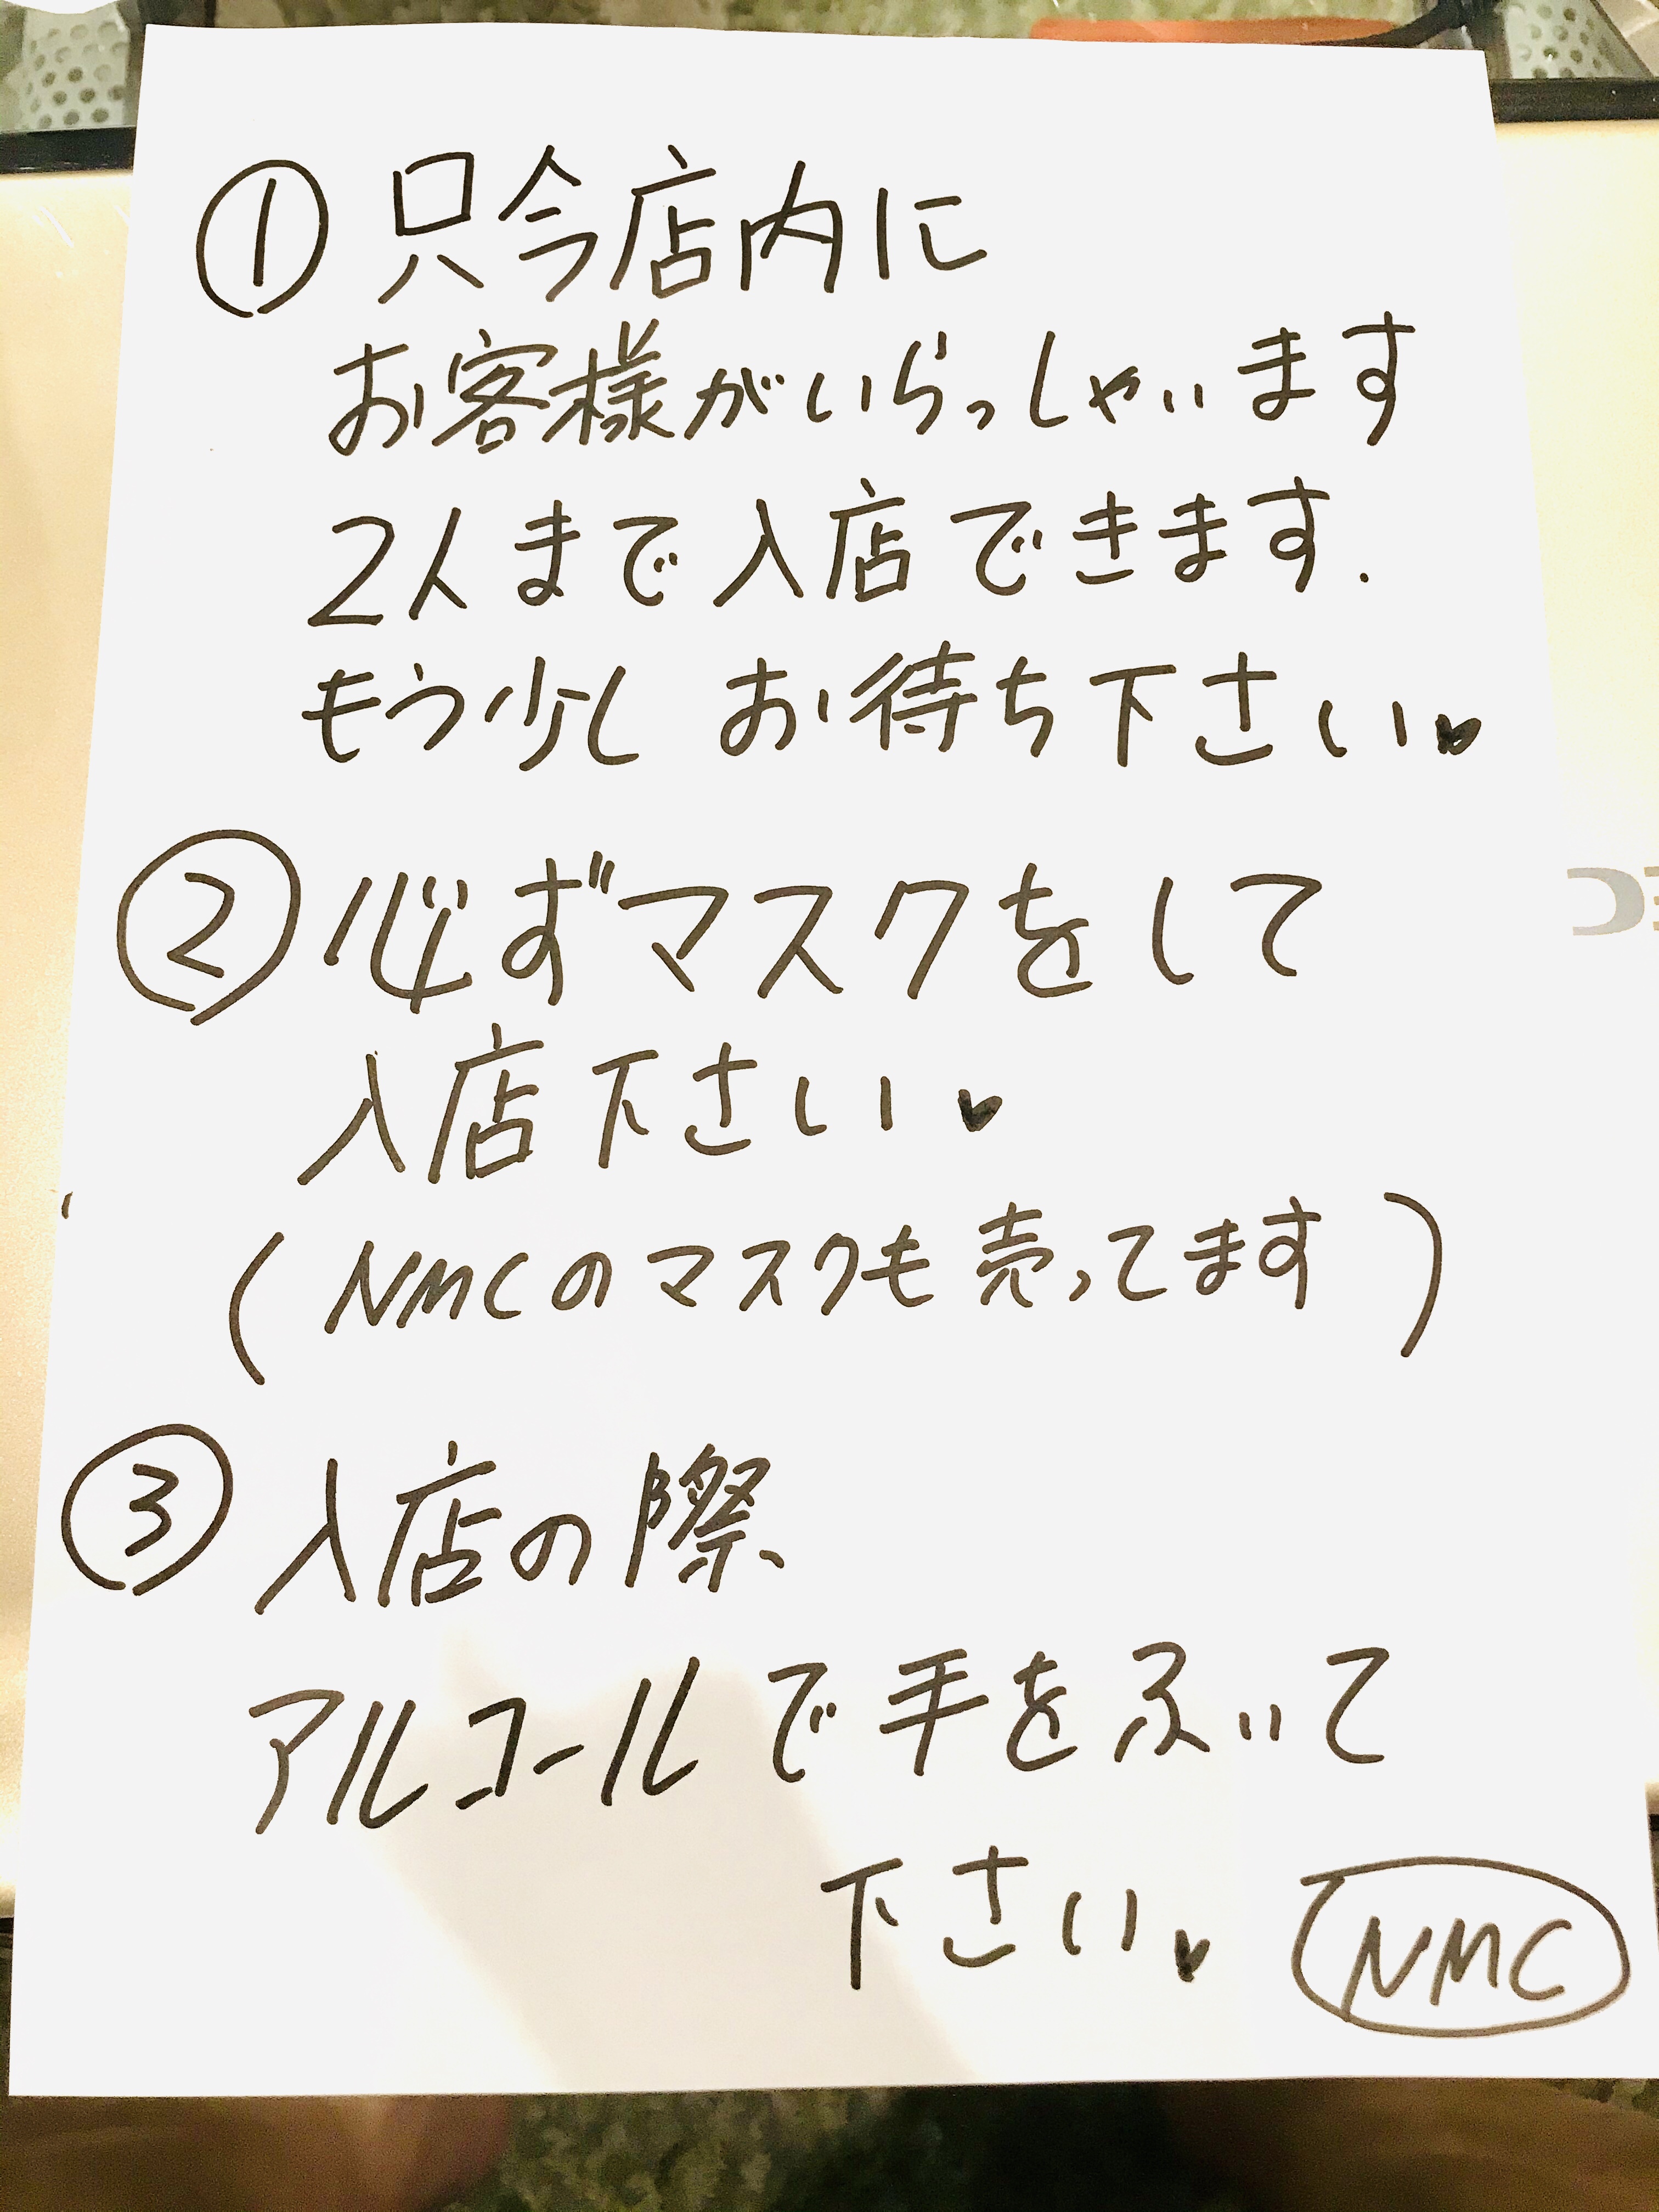 ① 只今店内に
お客様がいらっしゃいます
2人まで入店できます.
もう少し お待ち下さい♥
② 必ずマスクをして
入店下さい♥
(NMCのマスクも売ってます)
③ 入店の際、
アルコールで手をふいて
下さい♥
NMC